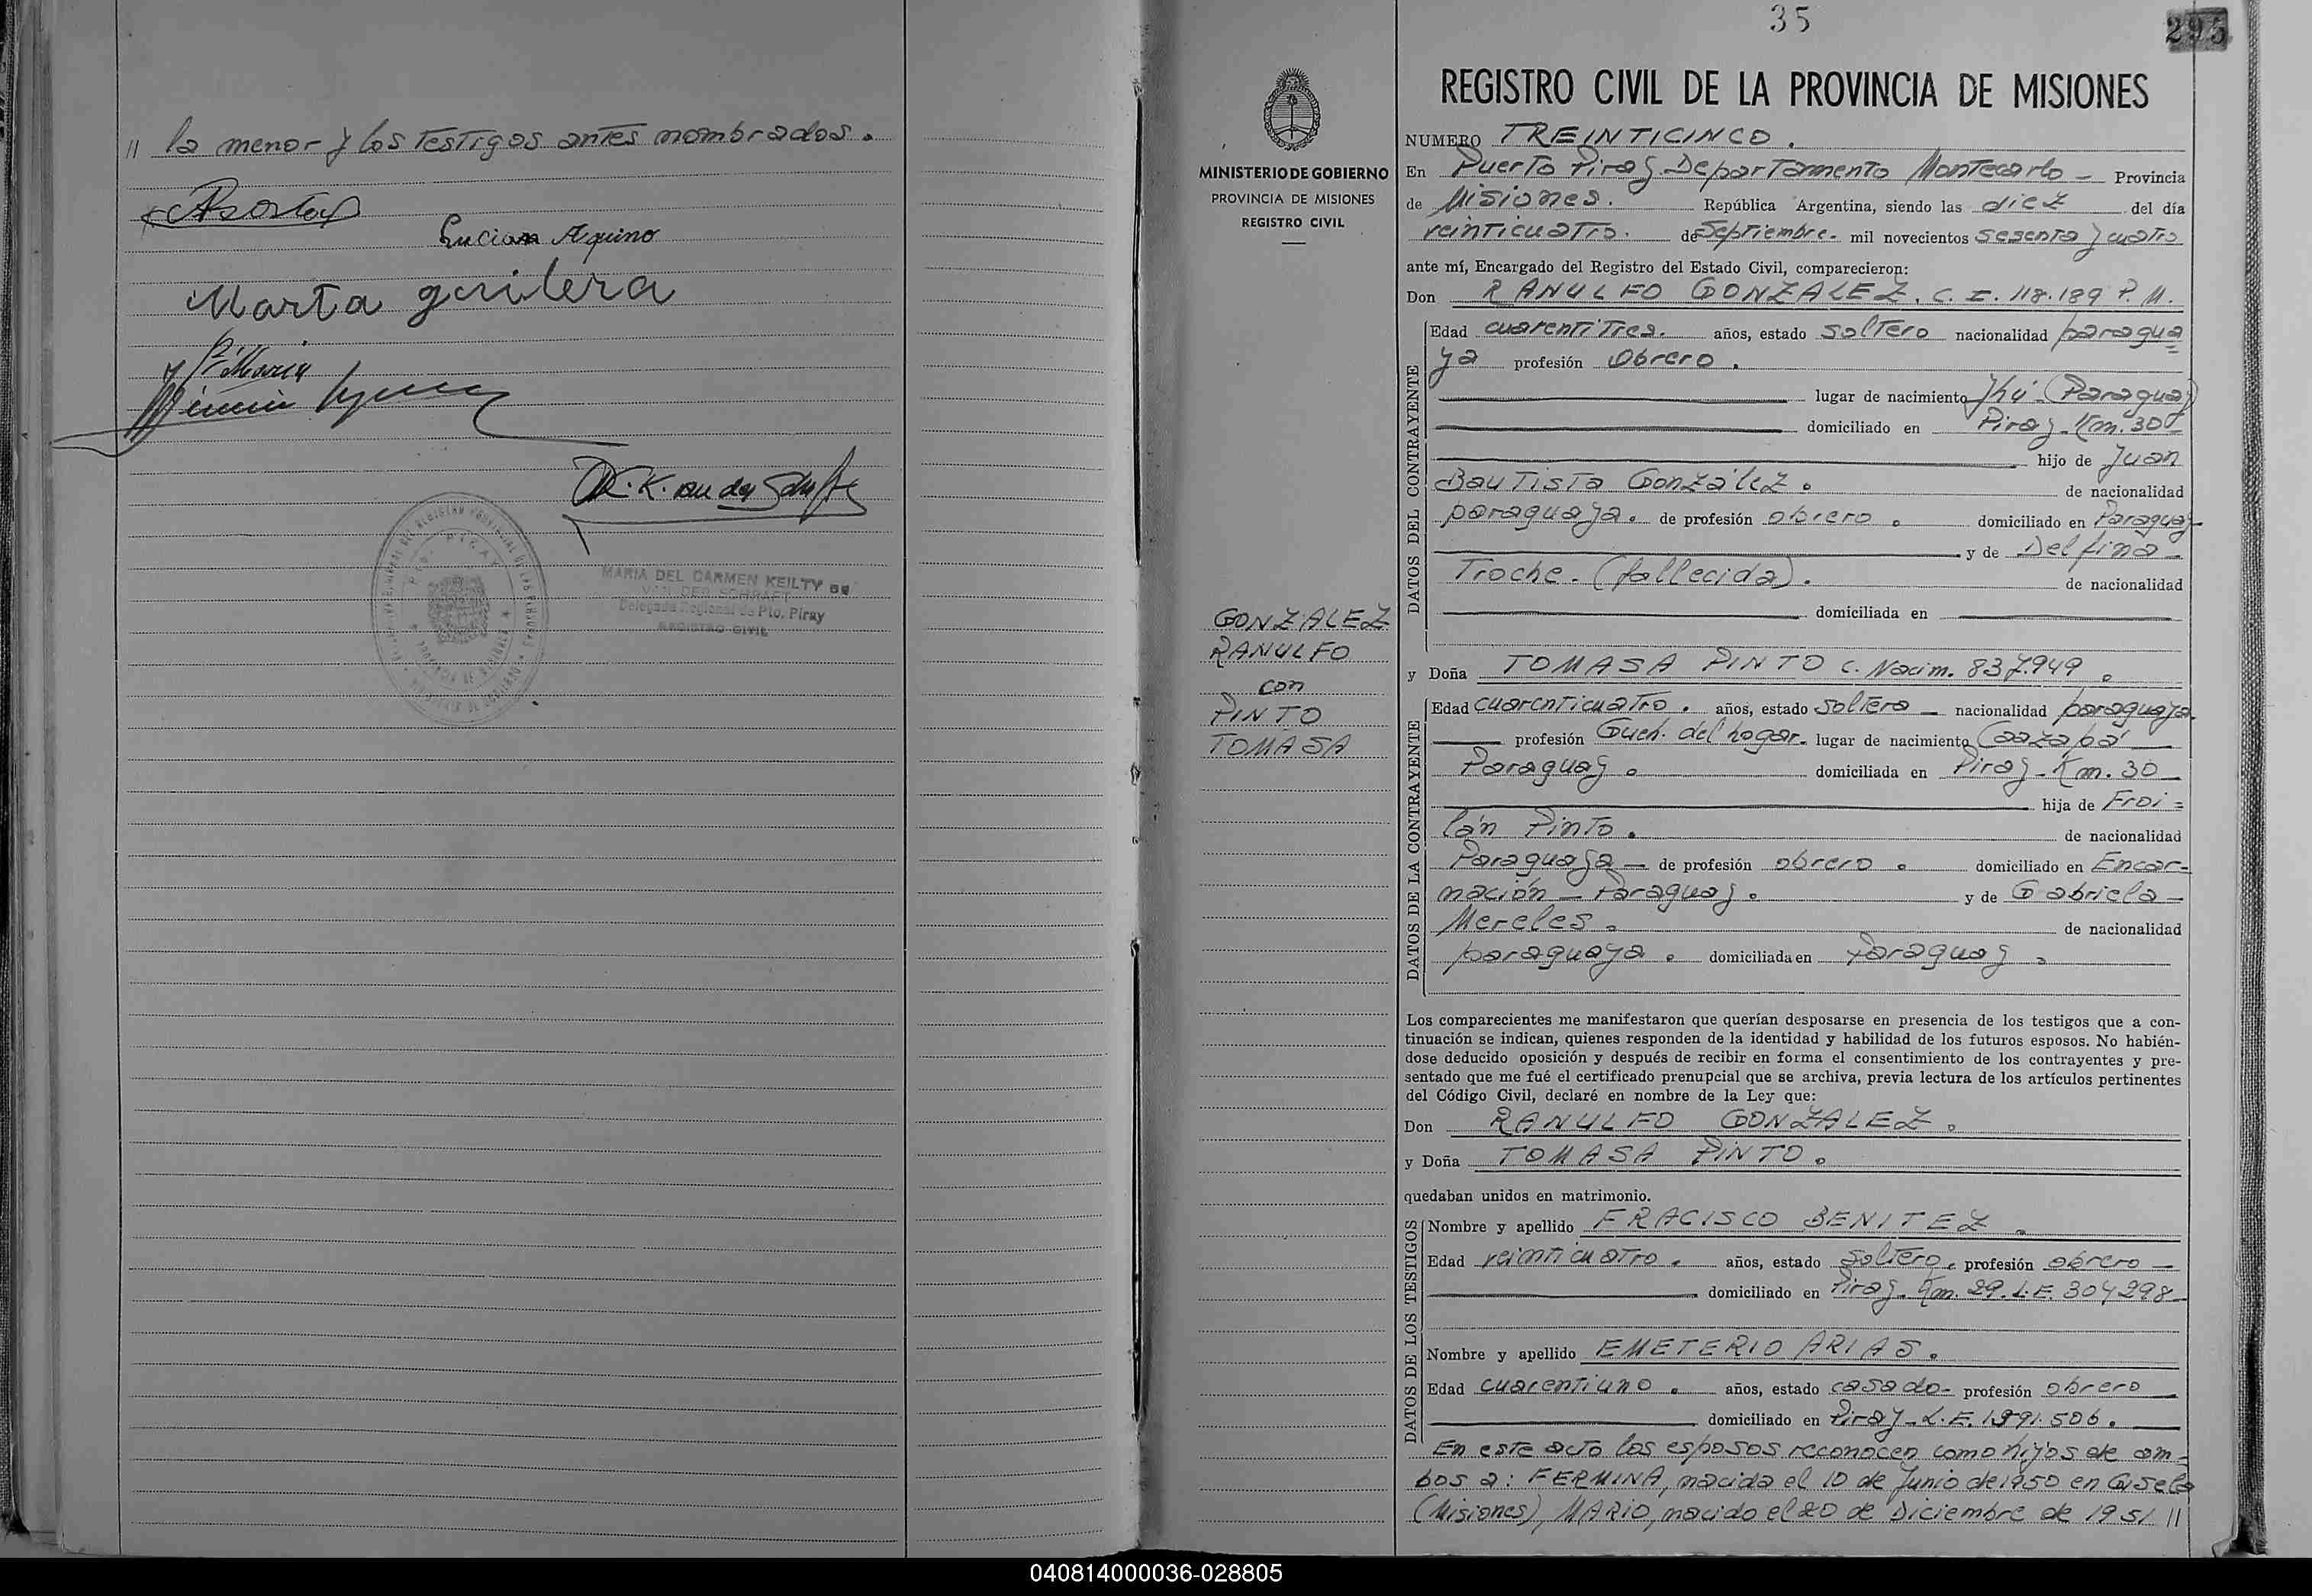 // la menor y los testigos antes nombrados.
Lucian Aquino
Marta
MARIA DEL CARMEN KEILTY DE
VAN DER SCHRAFT
Delegada Regional de Pto. Piray
REGISTRO CIVIL
MINISTERIO DE GOBIERNO
PROVINCIA DE MISIONES
REGISTRO CIVIL
GONZALEZ
RANULFO
con
PINTO
TOMASA
35
295
REGISTRO CIVIL DE LA PROVINCIA DE MISIONES
NUMERO TREINTICINCO.
En Puerto Piray. Departamento Montecarlo - Provincia
de Misiones. República Argentina, siendo las diez del día
veinticuatro. de Septiembre. mil novecientos sesenta y cuatro
ante mí, Encargado del Registro del Estado Civil, comparecieron:
Don RANULFO GONZALEZ. C. I. 118.189 P. M.
DATOS DEL CONTRAYENTE
Edad cuarentitres. años, estado soltero nacionalidad paragua=
ya profesión obrero.
lugar de nacimiento Yhú - (Paraguay)
domiciliado en Piray - Km. 30
hijo de Juan
Bautista González. de nacionalidad
paraguaya. de profesión obrero. domiciliado en Paraguay
y de Delfina -
Troche. (fallecida). de nacionalidad
domiciliada en
y Doña TOMASA PINTO C. Nacim. 837.949.
DATOS DE LA CONTRAYENTE
Edad cuarenticuatro. años, estado soltera - nacionalidad paraguaya.
profesión Queh. del hogar. lugar de nacimiento Caazapá
Paraguay. domiciliada en Piray - Km. 30
hija de Froi=
lán Pinto. de nacionalidad
Paraguaya - de profesión obrero. domiciliado en Encar=
nación - Paraguay. y de Gabriela -
Mereles. de nacionalidad
paraguaya. domiciliada en Paraguay.
Los comparecientes me manifestaron que querían desposarse en presencia de los testigos que a con-
tinuación se indican, quienes responden de la identidad y habilidad de los futuros esposos. No habién-
dose deducido oposición y después de recibir en forma el consentimiento de los contrayentes y pre-
sentado que me fué el certificado prenupcial que se archiva, previa lectura de los artículos pertinentes
del Código Civil, declaré en nombre de la Ley que:
Don RANULFO GONZALEZ.
y Doña TOMASA PINTO.
quedaban unidos en matrimonio.
DATOS DE LOS TESTIGOS
Nombre y apellido FRACISCO BENITEZ.
Edad veinticuatro. años, estado soltero. profesión obrero -
domiciliado en Piray - Km. 29. L.E. 304298
Nombre y apellido EMETERIO ARIAS.
Edad cuarentiuno. años, estado casado - profesión obrero
domiciliado en Piray - L.E. 1.991.506.
En este acto los esposos reconocen como hijos de am=
bos a: FERMINA, nacida el 10 de Junio de 1950 en
(Misiones), MARIO, nacido el 20 de Diciembre de 1951 //
040814000036-028805